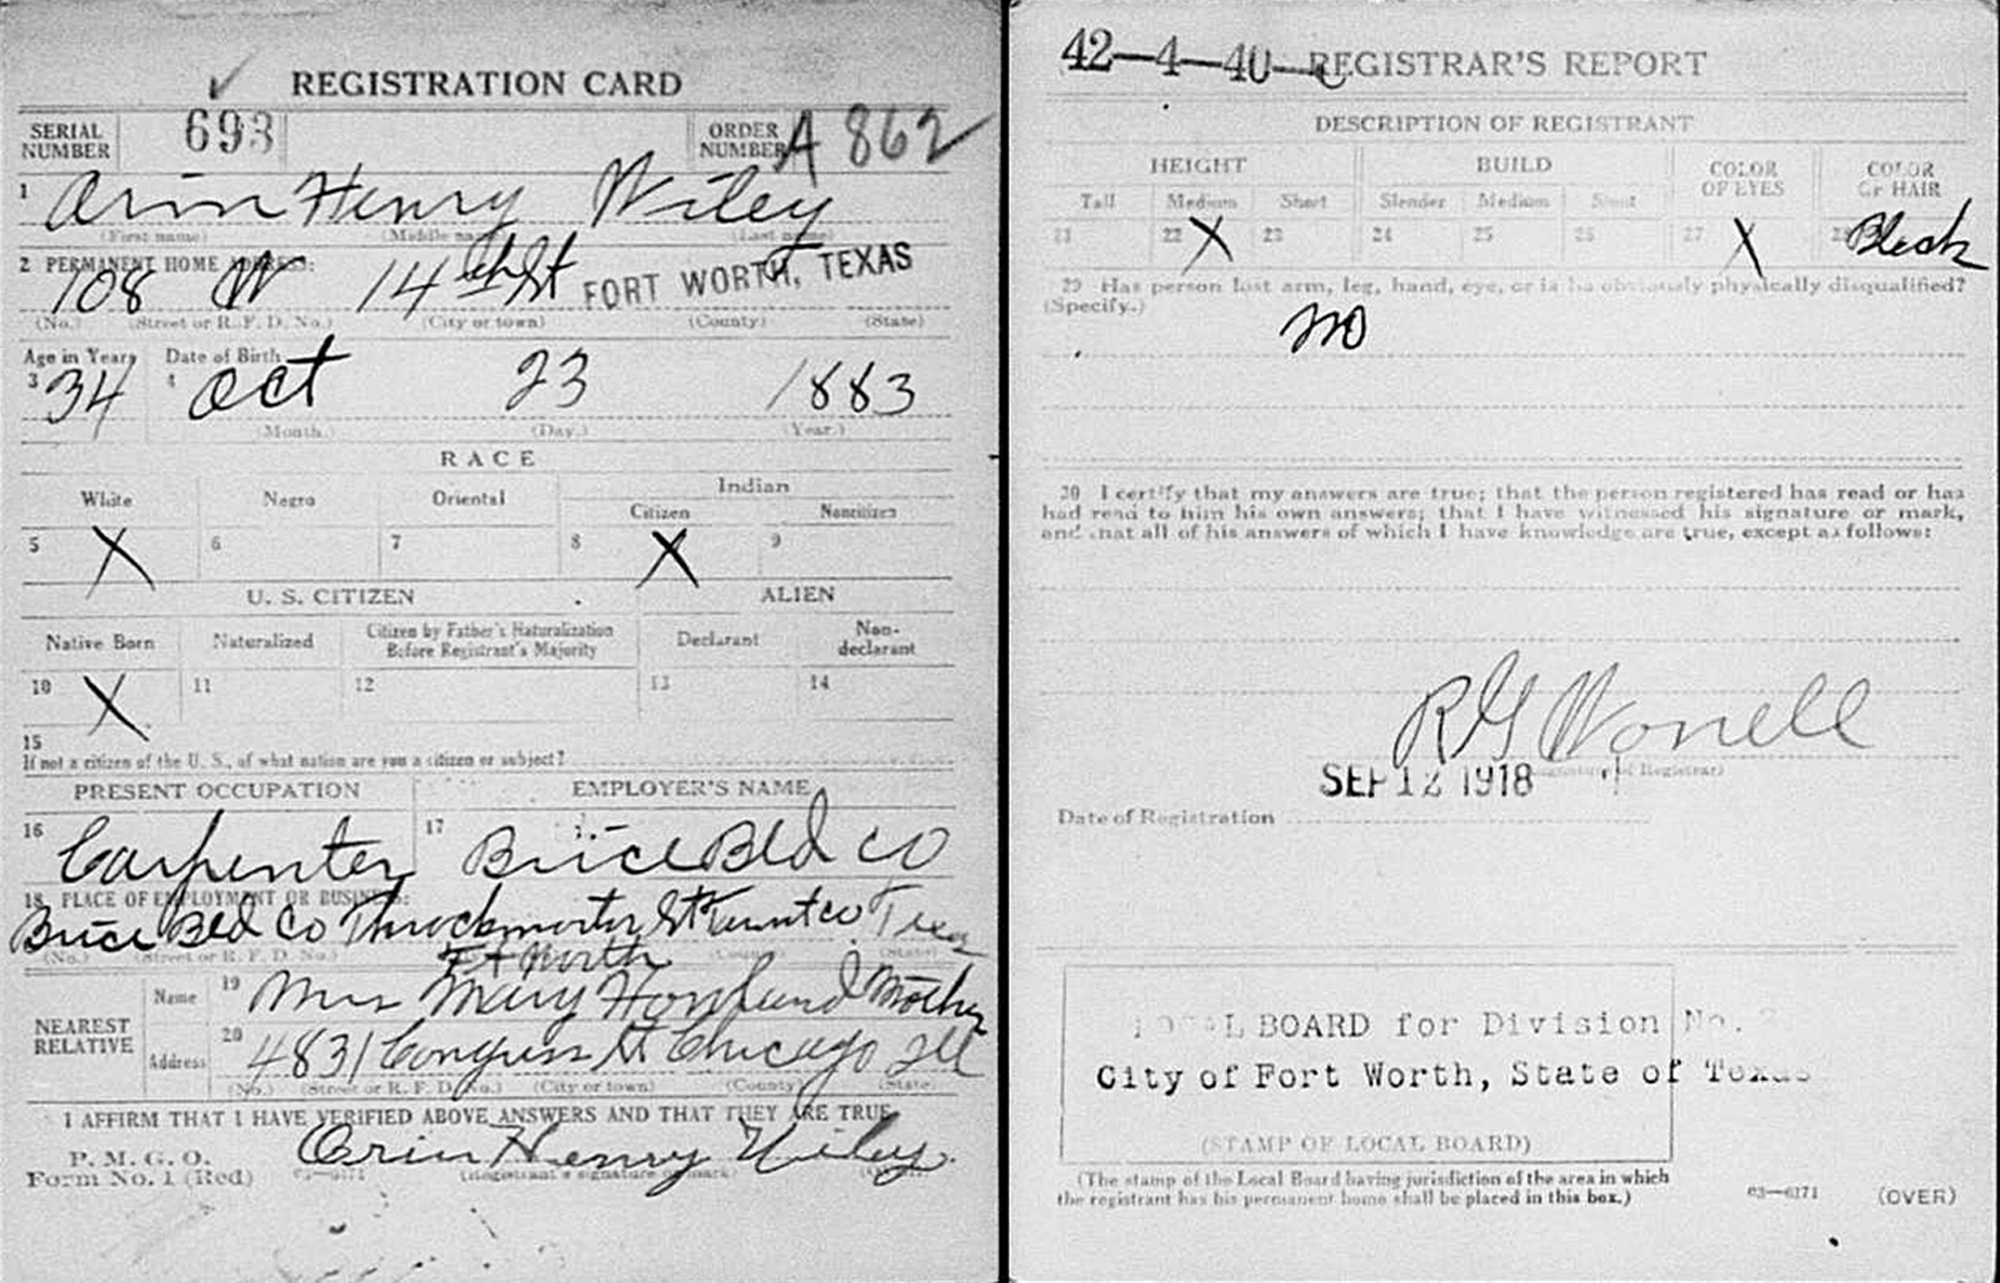 REGISTRATION CARD
SERIAL NUMBER 693 ORDER NUMBER A 862
1 Orin Henry Wiley
(First name) (Middle name) (Last name)
2 PERMANENT HOME ADDRESS:
108 W 14th St FORT WORTH, TEXAS
(No.) (Street or R. F. D. No.) (City or town) (County) (State)
Age in Years Date of Birth
3 34 4 Oct 23 1883
(Month.) (Day.) (Year.)
RACE
White Negro Oriental Indian
Citizen Noncitizen
5 X 6 7 8 X 9
U. S. CITIZEN ALIEN
Native Born Naturalized Citizen by Father's Naturalization Before Registrant's Majority Declarant Non-declarant
10 X 11 12 13 14
15
If not a citizen of the U. S., of what nation are you a citizen or subject?
PRESENT OCCUPATION EMPLOYER'S NAME
16 Carpenter 17 Brice Bld Co
18 PLACE OF EMPLOYMENT OR BUSINESS:
Brice Bld Co Throckmorton St Tarrnt co Texas
(No.) (Street or R. F. D. No.) (County) (State)
Ft Worth
NEAREST RELATIVE
Name 19 Mrs Mary Mother
Address 20 4831 Congress St Chicago Ill
(No.) (Street or R. F. D. No.) (City or town) (County) (State)
I AFFIRM THAT I HAVE VERIFIED ABOVE ANSWERS AND THAT THEY ARE TRUE
P. M. G. O.
Form No. 1 (Red) Orin Henry Wiley
(Registrant's signature or mark)
42-4-40- REGISTRAR'S REPORT
DESCRIPTION OF REGISTRANT
HEIGHT BUILD COLOR OF EYES COLOR OF HAIR
Tall Medium Short Slender Medium Stout
21 22 X 23 24 25 26 27 X 28 Black
29 Has person lost arm, leg, hand, eye, or is he obviously physically disqualified?
(Specify.)
no
30 I certify that my answers are true; that the person registered has read or has
had read to him his own answers; that I have witnessed his signature or mark,
and that all of his answers of which I have knowledge are true, except as follows:
R G Worrell
(Signature of Registrar)
SEP 12 1918
Date of Registration
LOCAL BOARD for Division No.
City of Fort Worth, State of Texas
(STAMP OF LOCAL BOARD)
(The stamp of the Local Board having jurisdiction of the area in which
the registrant has his permanent home shall be placed in this box.)
03—6171 (OVER)